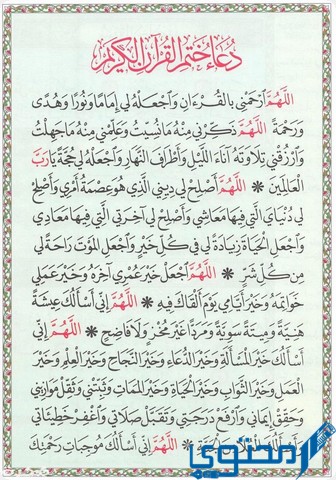 دُعَاءُ خَتْمِ الْقُرْآنِ الْكَرِيمِ
اللَّهُمَّ ارْحَمْنِي بِالقُرْءَانِ وَاجْعَلهُ لِي إِمَامًا وَنُورًا وَهُدًى
وَرَحْمَةً اللَّهُمَّ ذَكِّرْنِي مِنْهُ مَا نَسِيتُ وَعَلِّمْنِي مِنْهُ مَا جَهِلْتُ
وَارْزُقْنِي تِلَاوَتَهُ آنَاءَ اللَّيْلِ وَأَطْرَافَ النَّهَارِ وَاجْعَلْهُ لِي حُجَّةً يَا رَبَّ
الْعَالَمِينَ * اللَّهُمَّ أَصْلِحْ لِي دِينِي الَّذِي هُوَ عِصْمَةُ أَمْرِي وَأَصْلِحْ
لِي دُنْيَايَ الَّتِي فِيهَا مَعَاشِي وَأَصْلِحْ لِي آخِرَتِي الَّتِي فِيهَا مَعَادِي
وَاجْعَلِ الْحَيَاةَ زِيَادَةً لِي فِي كُلِّ خَيْرٍ وَاجْعَلِ الْمَوْتَ رَاحَةً لِي
مِنْ كُلِّ شَرٍّ * اللَّهُمَّ اجْعَلْ خَيْرَ عُمْرِي آخِرَهُ وَخَيْرَ عَمَلِي
خَوَاتِمَهُ وَخَيْرَ أَيَّامِي يَوْمَ أَلْقَاكَ فِيهِ * اللَّهُمَّ إِنِّي أَسْأَلُكَ عِيشَةً
هَنِيَّةً وَمِيتَةً سَوِيَّةً وَمَرَدًّا غَيْرَ مُخْزٍ وَلَا فَاضِحٍ * اللَّهُمَّ إِنِّي
أَسْأَلُكَ خَيْرَ الْمَسْأَلَةِ وَخَيْرَ الدُّعَاءِ وَخَيْرَ النَّجَاحِ وَخَيْرَ الْعِلْمِ وَخَيْرَ
الْعَمَلِ وَخَيْرَ الثَّوَابِ وَخَيْرَ الْحَيَاةِ وَخَيْرَ الْمَمَاتِ وَثَبِّتْنِي وَثَقِّلْ مَوَازِينِي
وَحَقِّقْ إِيمَانِي وَارْفَعْ دَرَجَتِي وَتَقَبَّلْ صَلَاتِي وَاغْفِرْ خَطِيئَاتِي
* اللَّهُمَّ إِنِّي أَسْأَلُكَ مُوجِبَاتِ رَحْمَتِكَ
محتوى